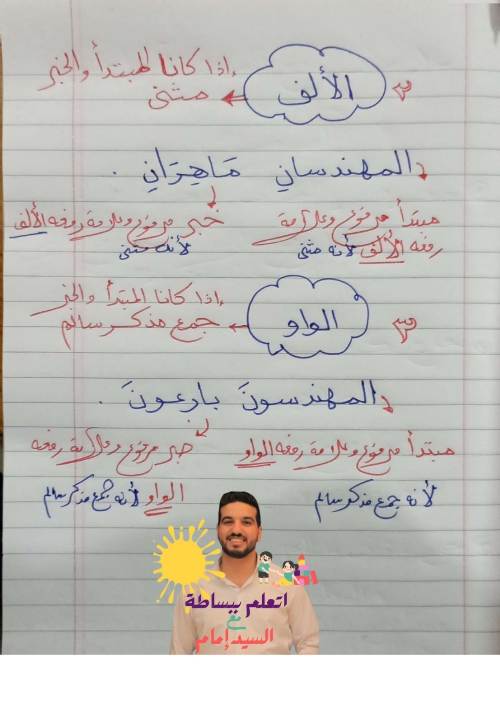 ٢ الألف ← إذا كانا المبتدأ والخبر
مثنى
المهندسانِ مَاهِرَانِ .
مبتدأ مرفوع وعلامة
رفعه الألف لأنه مثنى
خبر مرفوع وعلامة رفعه الألف
لأنه مثنى
٣ الواو ← إذا كانا المبتدأ والخبر
جمع مذكر سالم
المهندسونَ بارعونَ .
مبتدأ مرفوع وعلامة رفعه الواو
لأنه جمع مذكر سالم
خبر مرفوع وعلامة رفعه
الواو لأنه جمع مذكر سالم
اتعلم ببساطة
مع
السيد إمام